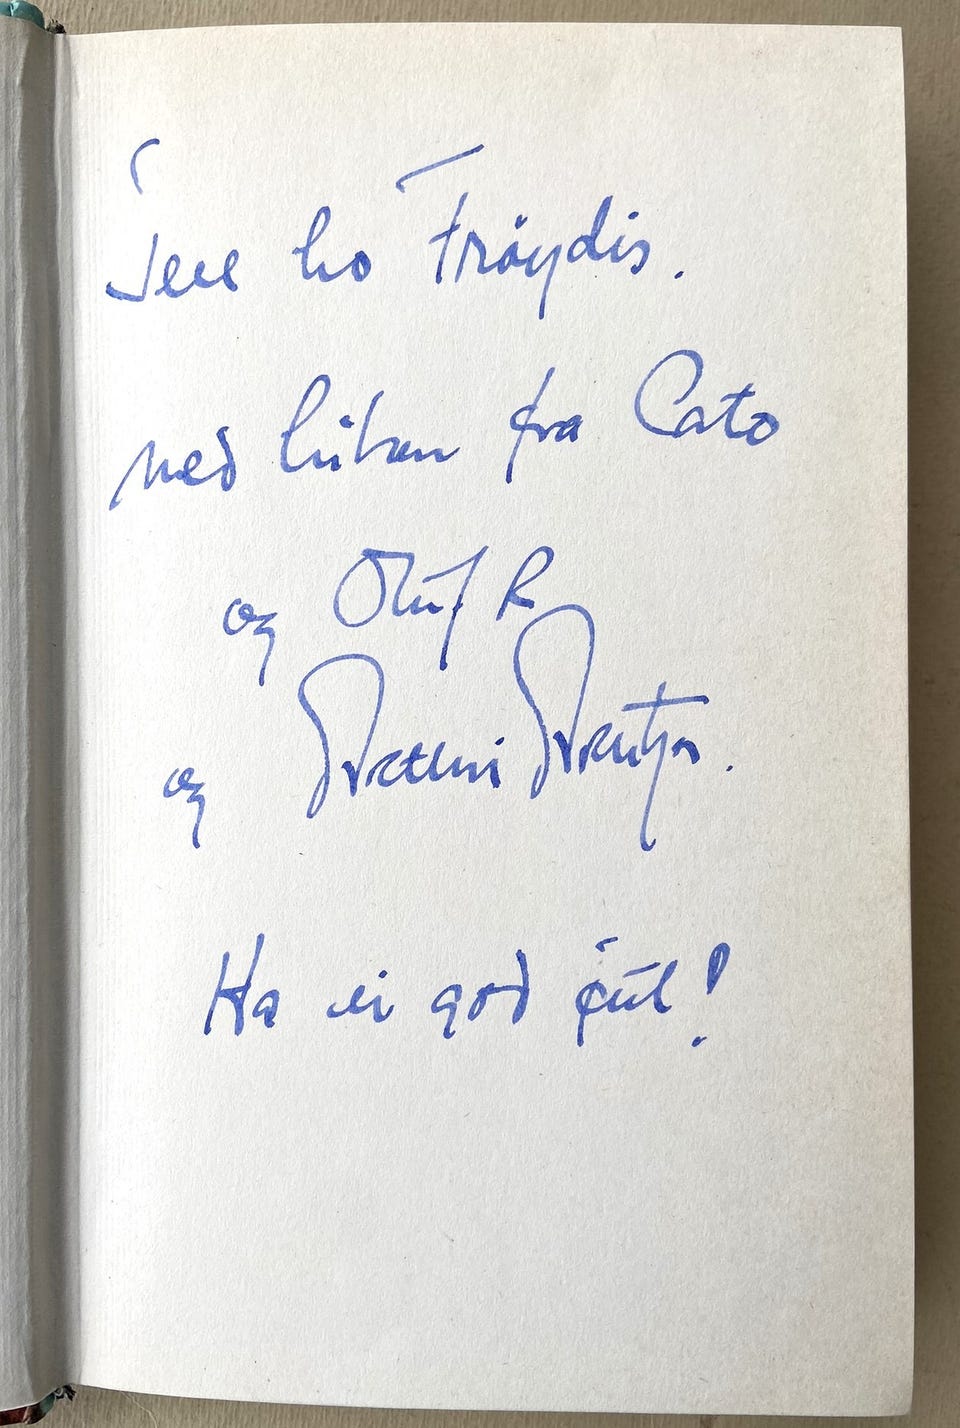 Teel ho Fröydis.
med hilsen fra Cato
og Oluf R
og
Ha ei god jul!